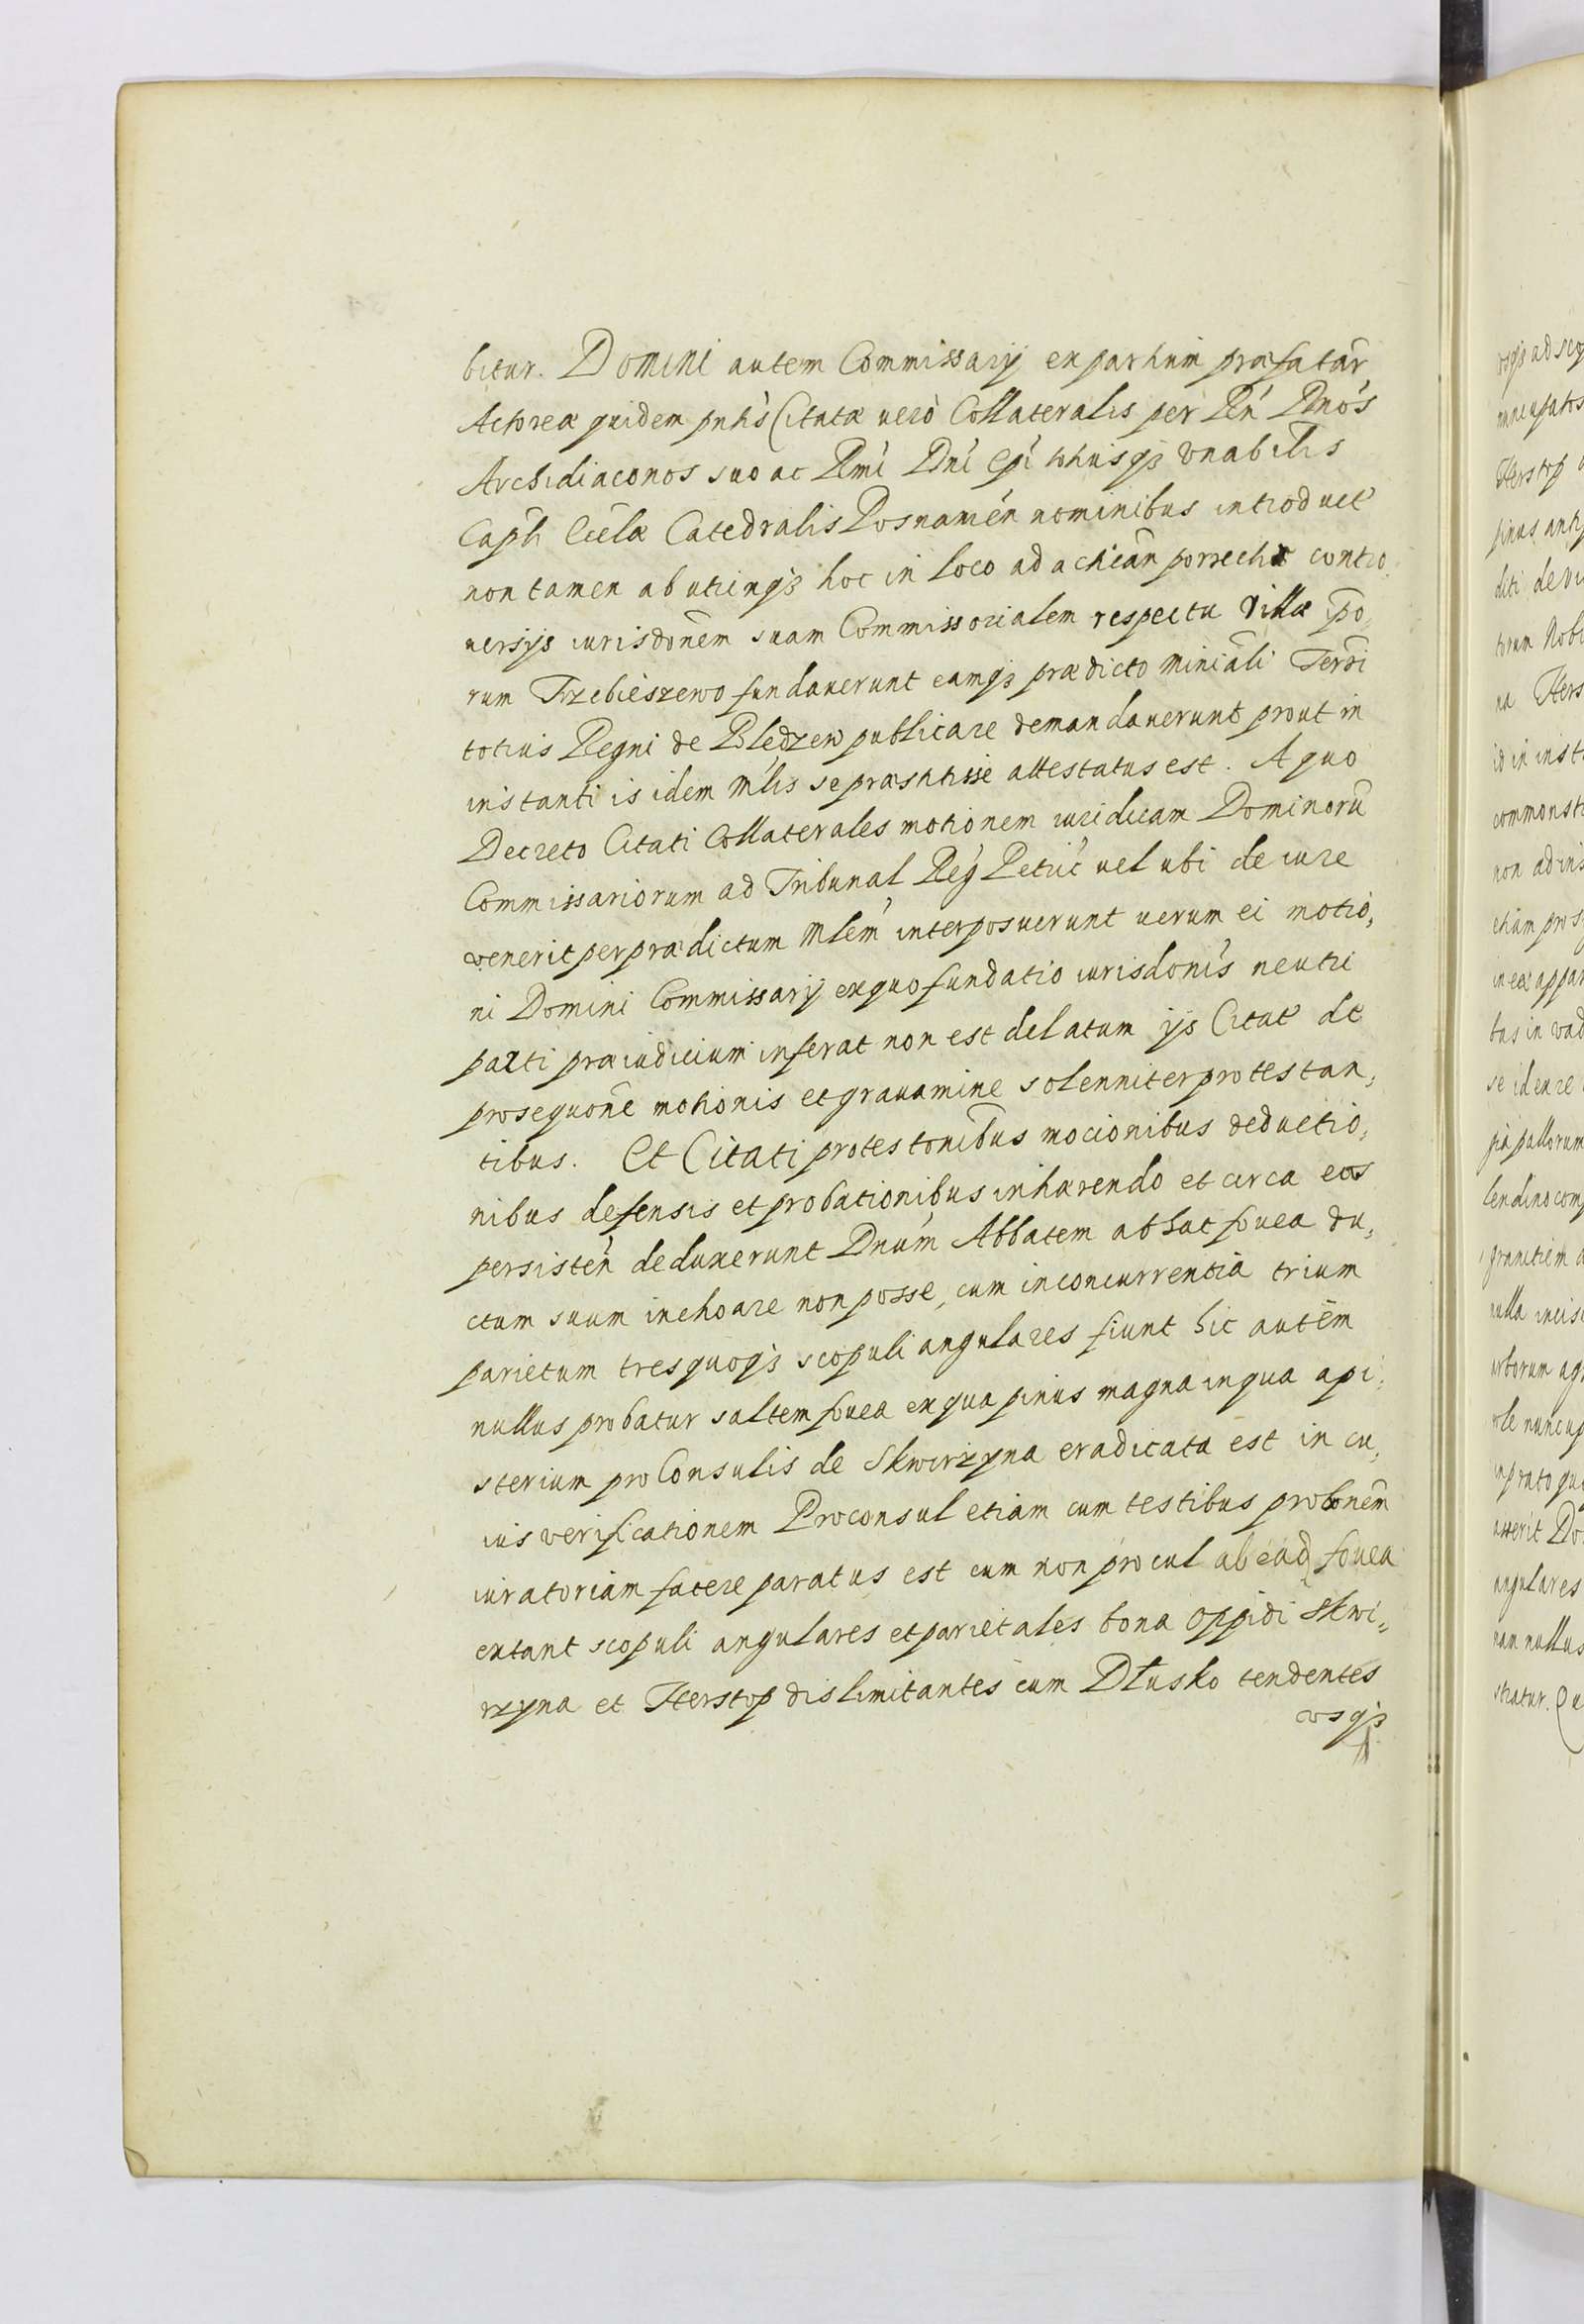 bitur. Domini autem Commissarij ex partium præfatar
Actoreæ quidem pntis Citatæ uero Collateralis per Rń Dnos
Archidiaconos suo ac Rmi Dni Epi totiusqз Vnabilis
Capli Ecclæ Catedralis Posnamen nominibus introduct
non tamen ab utrinqз hoc in loco ad actićan porrectis contro,
uersijs iurisdonem suam Commissorialem respectu Villæ ipo,
rum Trzebieszewo fundauerunt eamqз prædicto miniali Terri
totius Regni de Bledzew publicare demandauerunt prout in
instanti is idem Mlis se præstitisse attestatus est. A quo
Decreto Citati Collaterales motionem iuridicam Dominorū
Commissariorum ad Tribunal Reg Petric uel ubi de iure
venerit per prædictum Mlem interposuerunt uerum ei motio,
ni Domini Commissarij ex quo fundatio iurisdonis neutri
parti præiudicium inferat non est delatum ijs Citat de
prosequone motionis et grauamine solenniter protestan,
tibus. Et Citati protestonibus mocionibus deductio,
nibus defensis et probationibus inhærendo et circa eas
persisten deduxerunt Dnum Abbatem ab hac fouea du,
ctum suum inchoare non posse, cum in concurrentia trium
parietum tres quoqз scopuli angulares fiunt hic autem
nullus probatur saltem fouea ex qua pinus magna in qua api,
sterium pro Consulis de Skwirzyna eradicata est in cu,
ius verificationem Proconsul etiam cum testibus probonem
iuratoriam facere paratus est cum non procul ab ead fouea
extant scopuli angulares et parietales bona Oppidi Skwi,,
rzyna et Herstop dislimitantes cum Dłusko tendentes
vsqз